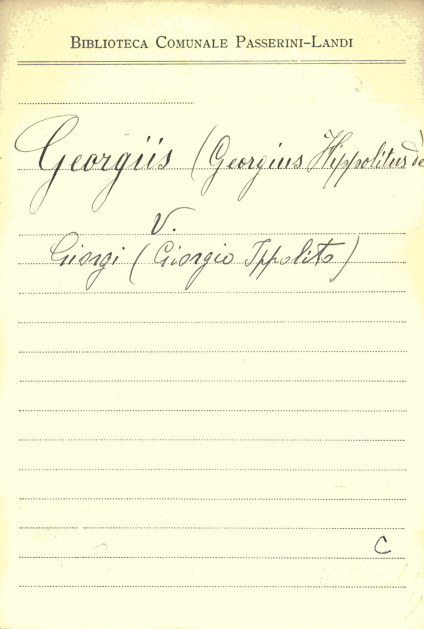 BIBLIOTECA COMUNALE PASSERINI-LANDI
Georgiis (Georgius Hippolitus de)
V.
Giorgi (Giorgio Ippolito)
C